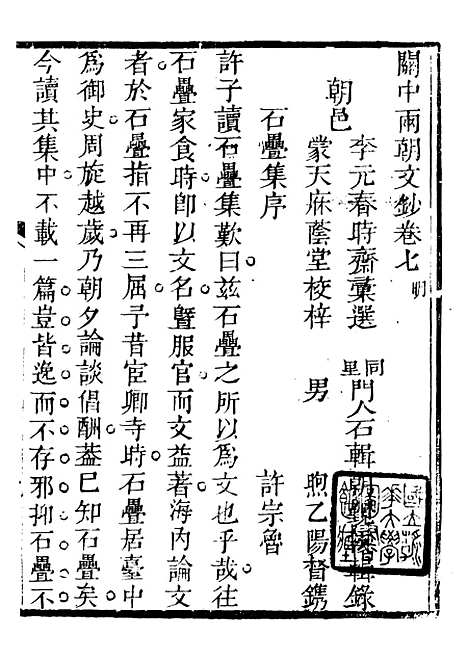 關中兩朝文鈔卷七 明
朝邑
李元春時齋彙選 同里門人石輯 錄
蒙天庥蔭堂校梓 男 煦乙陽督鐫
石疊集序 許宗魯
許子讀石疊集歎曰茲石疊之所以爲文也乎哉往
石疊家食時卽以文名曁服官而文益著海內論文
者於石疊指不再三屈予昔宦卿寺時石疊居臺中
爲御史周旋越歲乃朝夕論談倡酬葢巳知石疊矣
今讀其集中不載一篇豈皆逸而不存邪抑石疊不